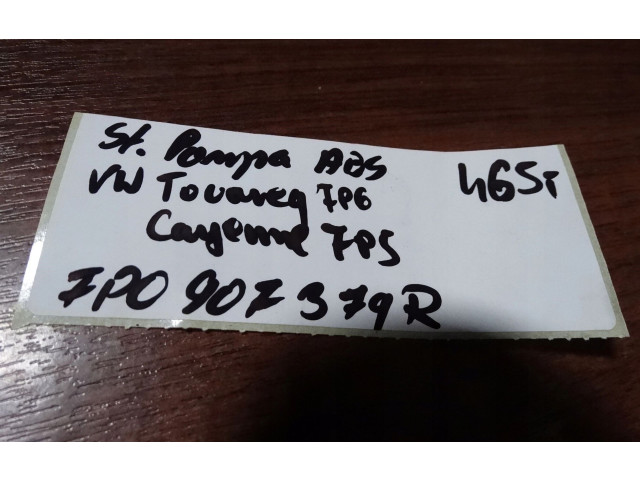 St. Pompa ABS
VW Touareg 7P6
Cayenne 7P5
7P0 907 379R
465i